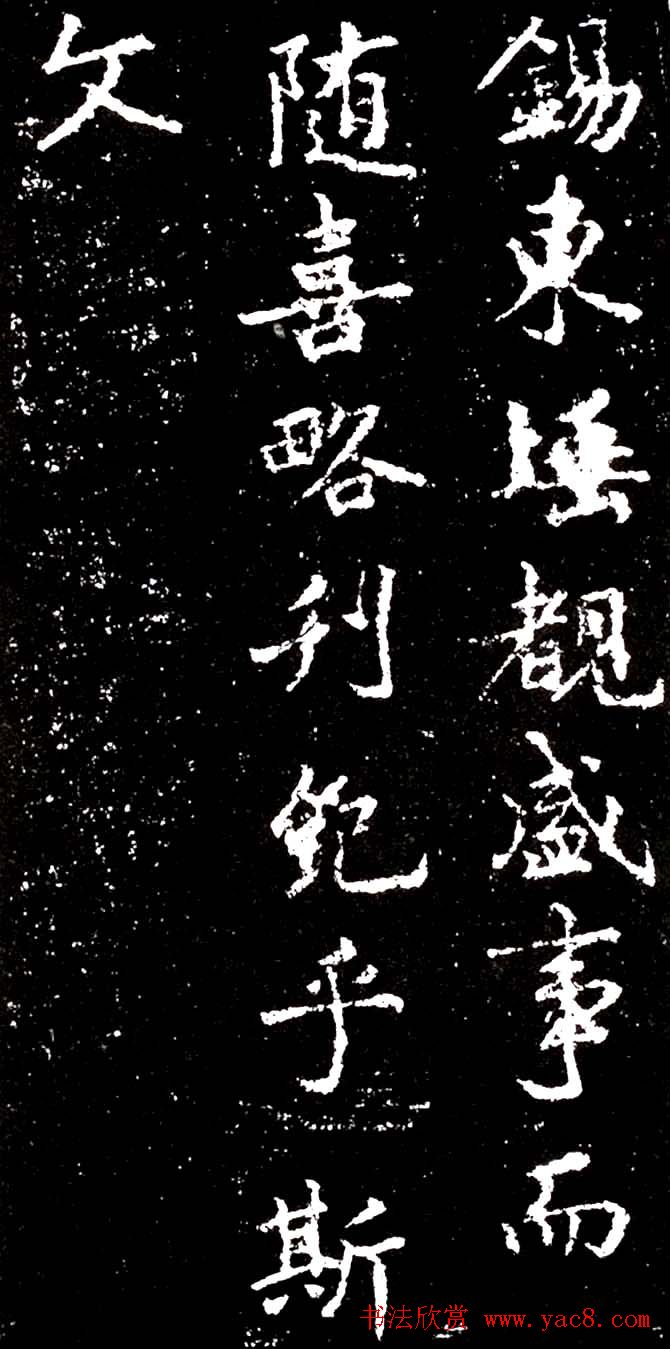 錫東垂覩盛事而
随喜略刋鉋乎斯
文
书法欣赏 www.yac8.com